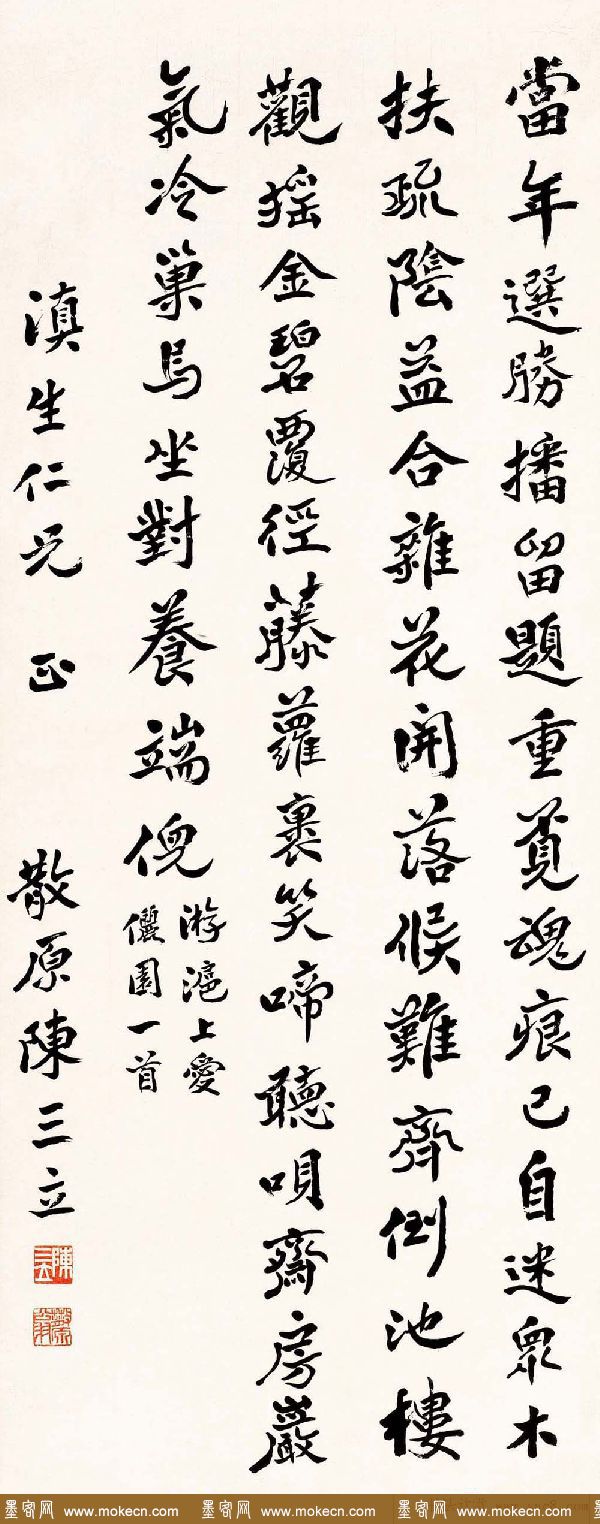 當年選勝播留題重覓魂痕已自迷眾木
扶疏陰益合雜花開落候難齊倒池樓
觀搖金碧覆徑藤蘿裹笑啼聽唄齋房巖
氣冷巢烏坐對養端倪
游滬上愛
儷園一首
滇生仁兄 正 散原陳三立
墨客网 www.mokecn.com 墨客网 www.mokecn.com 墨客网 www.mokecn.com